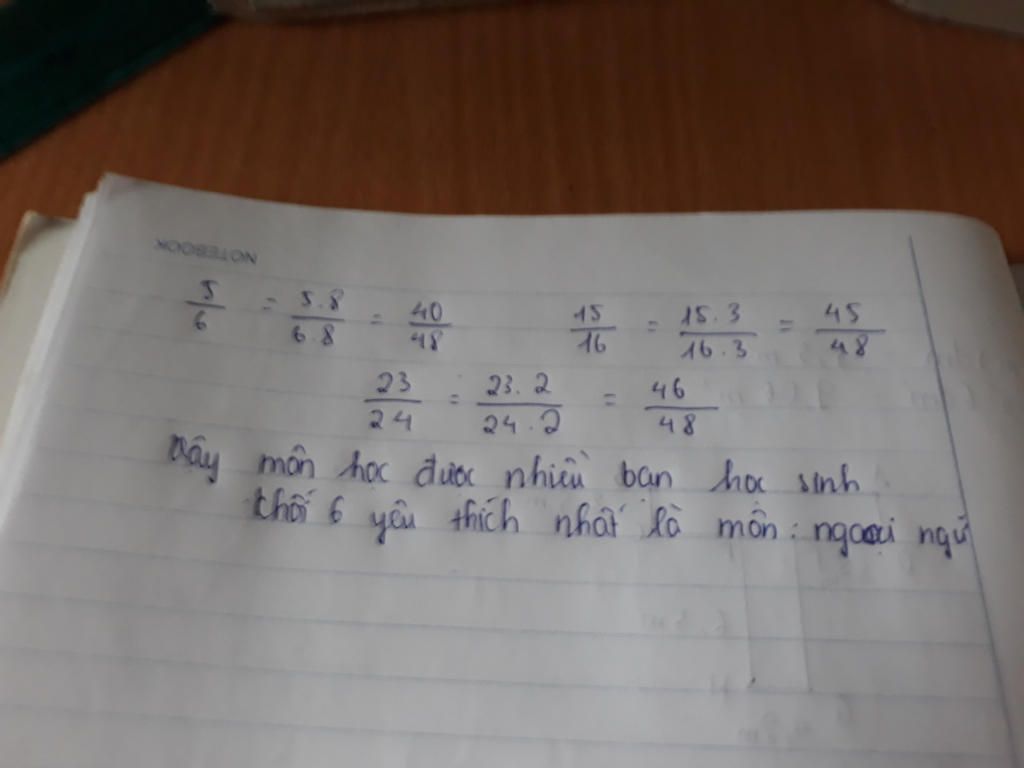 NOTEBOOK
5/6 = 5.8/6.8 = 40/48 15/16 = 15.3/16.3 = 45/48
23/24 = 23.2/24.2 = 46/48
Vậy môn học được nhiều bạn học sinh
khối 6 yêu thích nhất là môn: ngoại ngữ